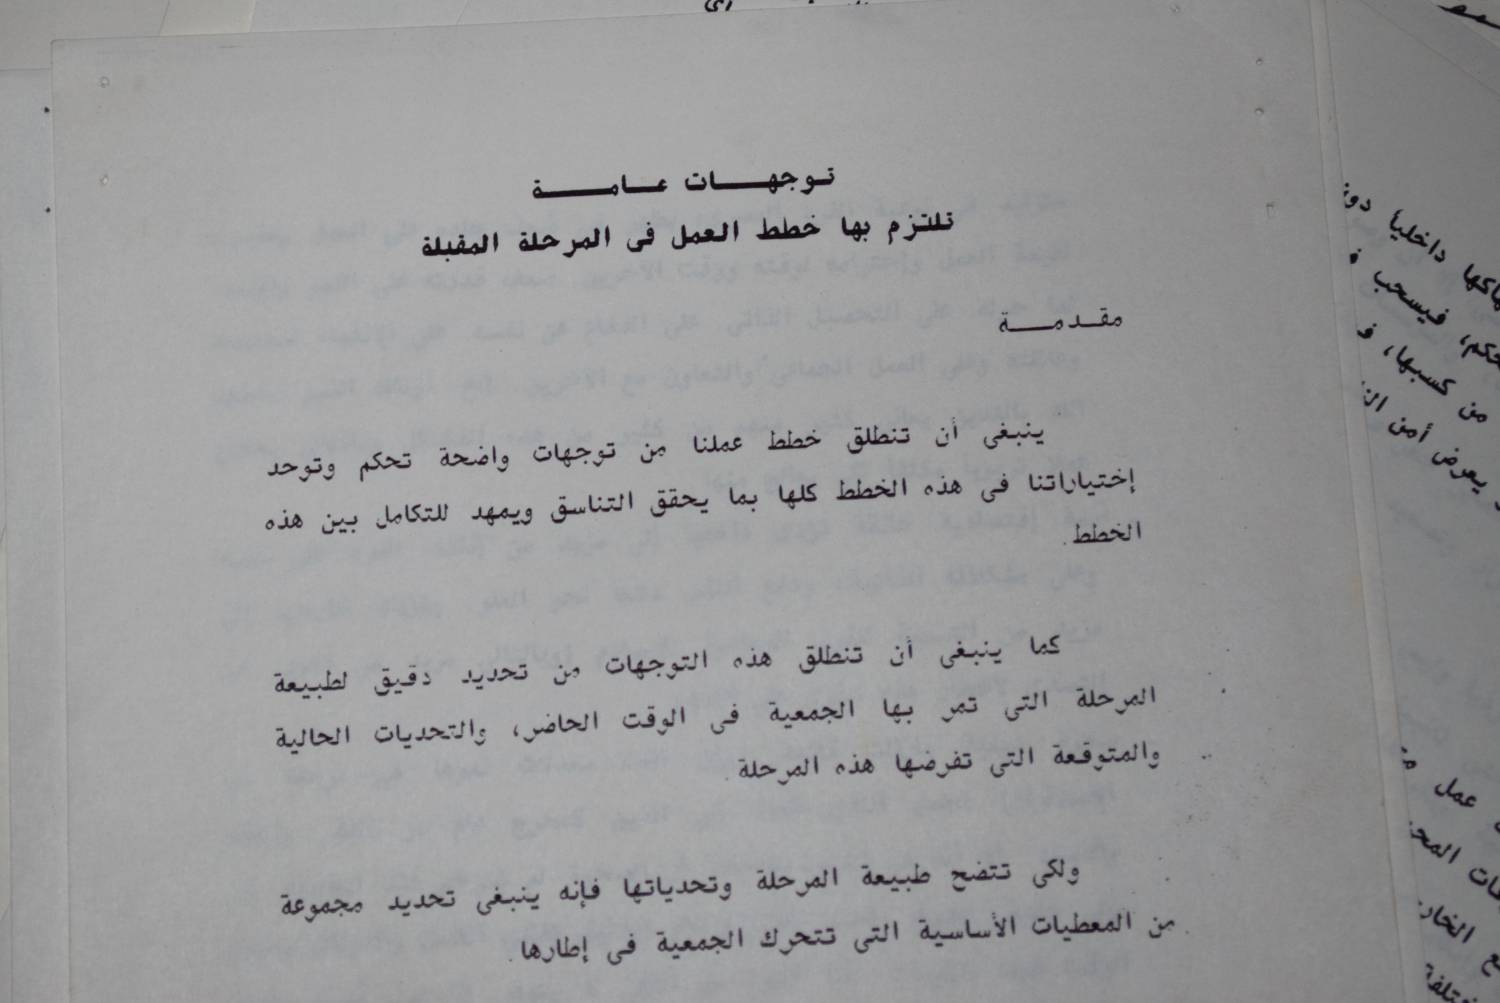 توجهات عامة
تلتزم بها خطط العمل فى المرحلة المقبلة
مقدمة
ينبغى أن تنطلق خطط عملنا من توجهات واضحة تحكم وتوحد
إختياراتنا فى هذه الخطط كلها بما يحقق التناسق ويمهد للتكامل بين هذه
الخطط.
كما ينبغى أن تنطلق هذه التوجهات من تحديد دقيق لطبيعة
المرحلة التى تمر بها الجمعية فى الوقت الحاضر، والتحديات الحالية
والمتوقعة التى تفرضها هذه المرحلة.
ولكى تتضح طبيعة المرحلة وتحدياتها فإنه ينبغى تحديد مجموعة
من المعطيات الأساسية التى تتحرك الجمعية فى إطارها.
داخلياً
فيسحب
من كسبها،
يعرض أمن
عمل